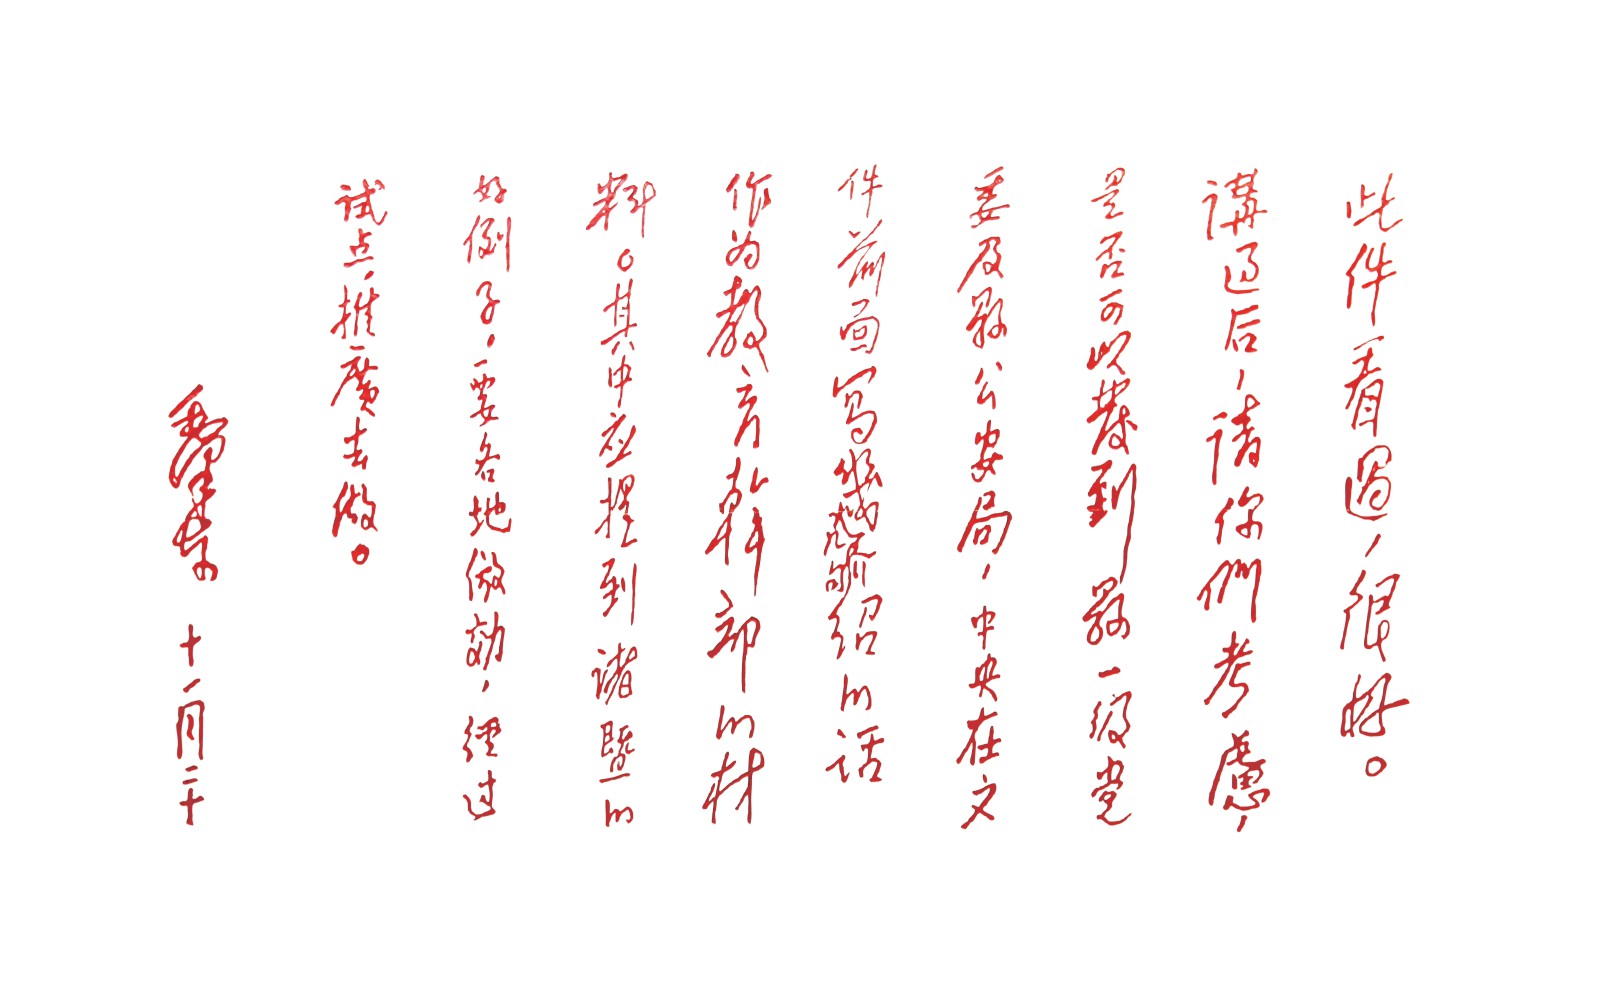 此件看過，很好。
講过后，請你們考慮，
是否可以發到縣一級党
委及縣公安局，中央在文
件前面写幾句介绍的话
作为教育幹部的材
料。其中应提到諸暨的
好例子，要各地倣効，經过
试点，推廣去做。
毛澤东 十一月二十